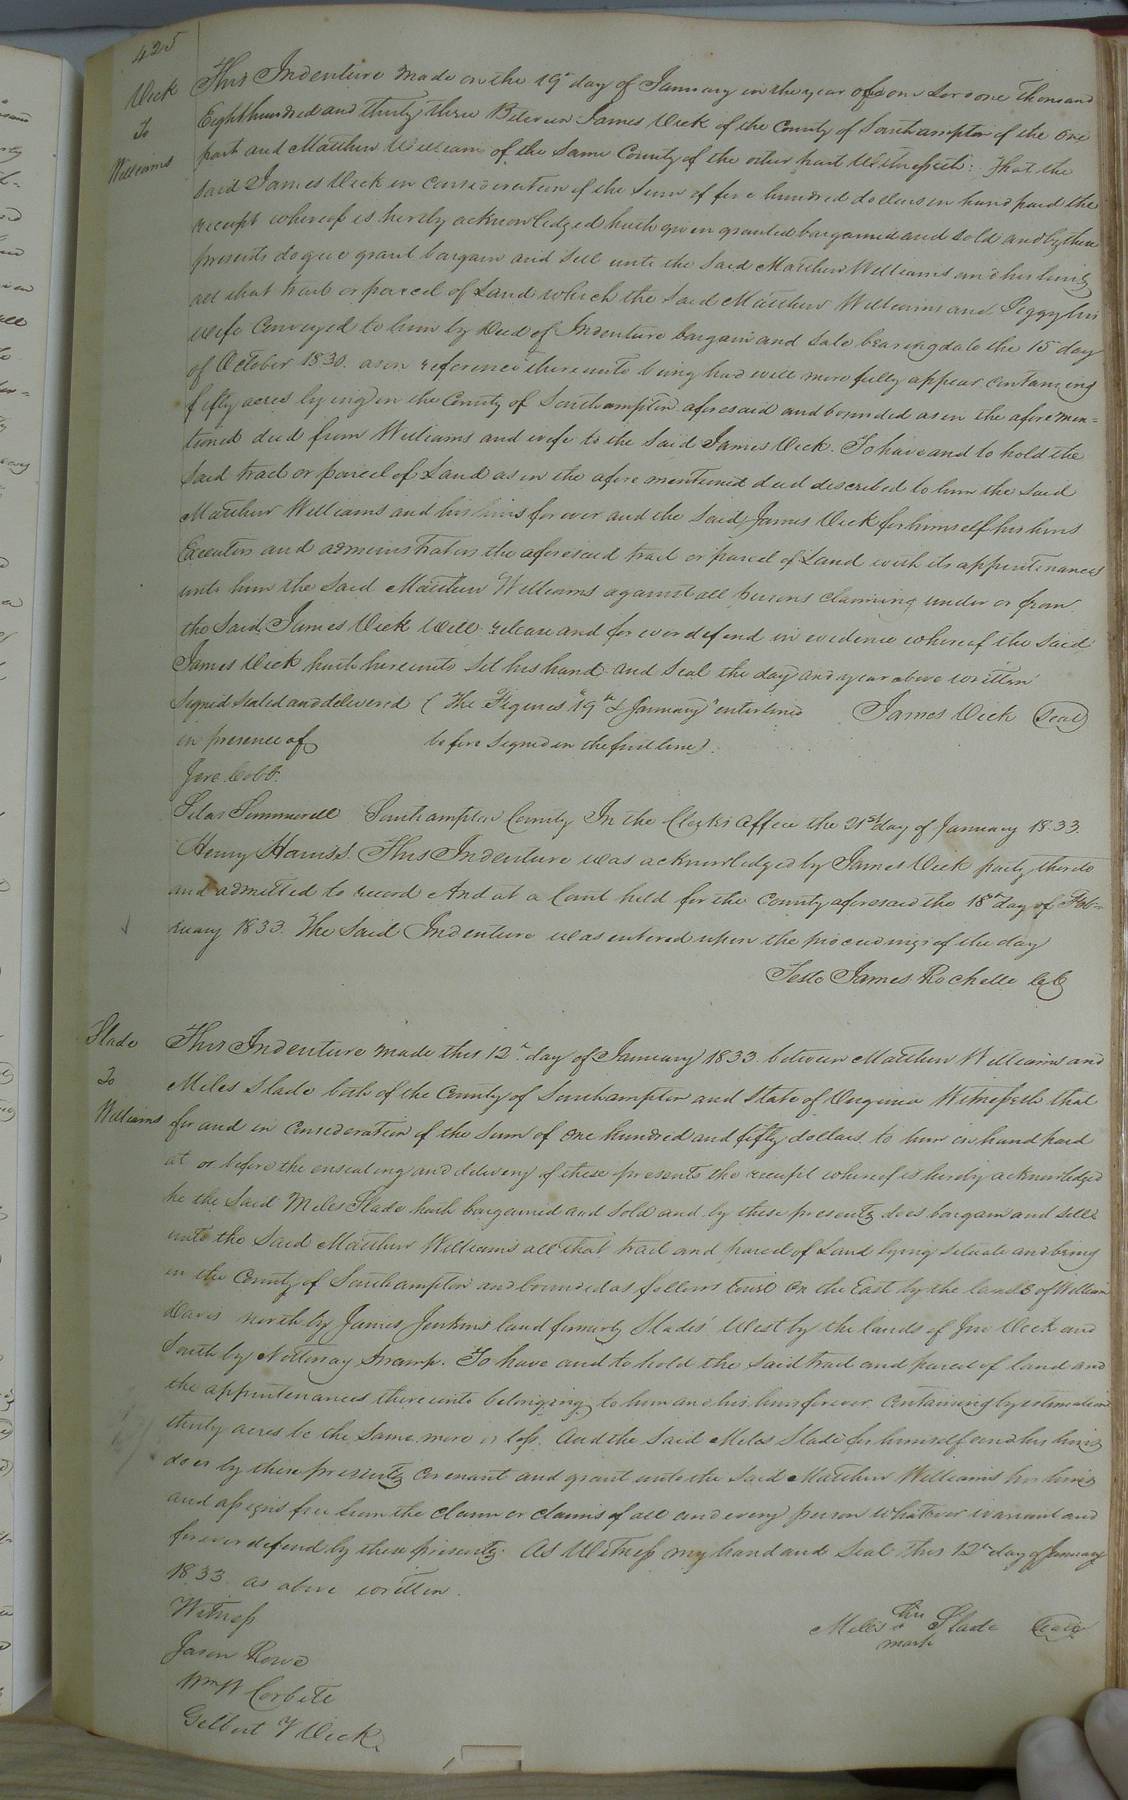 425
Vick
To
Williams
This Indenture made on the 19th day of January in the year of our Lord one Thousand
Eight hundred and thirty three Between James Vick of the County of Southampton of the one
part and Matthew Williams of the Same County of the other part Witnesseth: That the
said James Vick in consideration of the Sum of five hundred dollars in hand paid the
receipt whereof is hereby acknowledged hath given granted bargained and sold and by these
presents do give grant bargain and sell unto the Said Matthew Williams and his heirs
all that tract or parcel of Land which the Said Matthew Williams and Peggy his
wife Conveyed to him by Deed of Indenture bargain and sale bearing date the 15 day
of October 1830. as on reference thereunto being had will more fully appear containing
fifty acres lying in the County of Southampton aforesaid and bounded as in the aforemen=
tioned deed from Williams and wife to the Said James Vick. To have and to hold the
Said tract or parcel of Land as in the afore mentioned deed described to him the Said
Matthew Williams and his heirs forever and the Said James Vick for himself his heirs
Executors and administrators the aforesaid tract or parcel of Land with its appurtenances
unto him the Said Matthew Williams against all persons claiming under or from
the Said James Vick will release and forever defend in evidence whereof the Said
James Vick hath hereunto Set his hand and Seal the day and year above written
Signed Sealed and delivered (The Figures "19th & January" enterlined James Vick (Seal)
in presence of before Signed in the first line).
Jere. Cobb.
Silas Summerell Southampton County In the Clerks office the 21st day of January 1833.
Henry Harris. This Indenture was acknowledged by James Vick party thereto
and admitted to record And at a Court held for the County aforesaid the 18th day of Feb=
ruary 1833. The Said Indenture was entered upon the proceedings of the day
Teste James Rochelle CC
Slade
To
Williams
This Indenture made this 12th day of January 1833 between Matthew Williams and
Miles Slade both of the County of Southampton and State of Virginia Witnesseth that
for and in Consideration of the Sum of one hundred and fifty dollars to him in hand paid
at or before the ensealing and delivery of these presents the receipt whereof is hereby acknowledged
he the Said Miles Slade hath bargained and sold and by these presents does bargain and sell
unto the Said Matthew Williams all that tract and parcel of Land lying situate and being
in the County of Southampton and bounded as follows towit On the East by the lands of William
Davis north by James Jenkins land formerly Slades' West by the lands of Jno Vick and
South by Nottoway Swamp. To have and to hold the said tract and parcel of land and
the appurtenances thereunto belonging to him and his heirs forever. Containing by estimation
thirty acres be the Same more or less. And the Said Miles Slade for himself and his heirs
does by these presents Covenant and grant unto the Said Matthew Williams his heirs
and assigns free from the claim or claims of all and every person whatever warrant and
forever defend by these presents. As Witness my hand and Seal this 12th day of January
1833 as above written.
Witness
Miles his Slade (Seal)
mark
Jason Rowe
Wm W Corbitt
Gilbert Vick